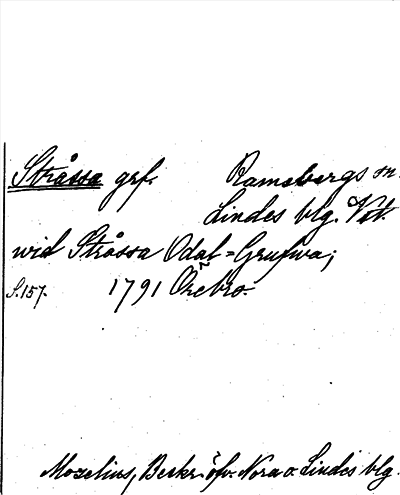 Stråssa grf. Ramsbergs sn.
Lindes blg. Vstm.
wid Stråssa Odal-Grufwa;
S.157. 1791 Örebro.
Mozelius, Beskr. öfv. Nora o. Lindes blg.